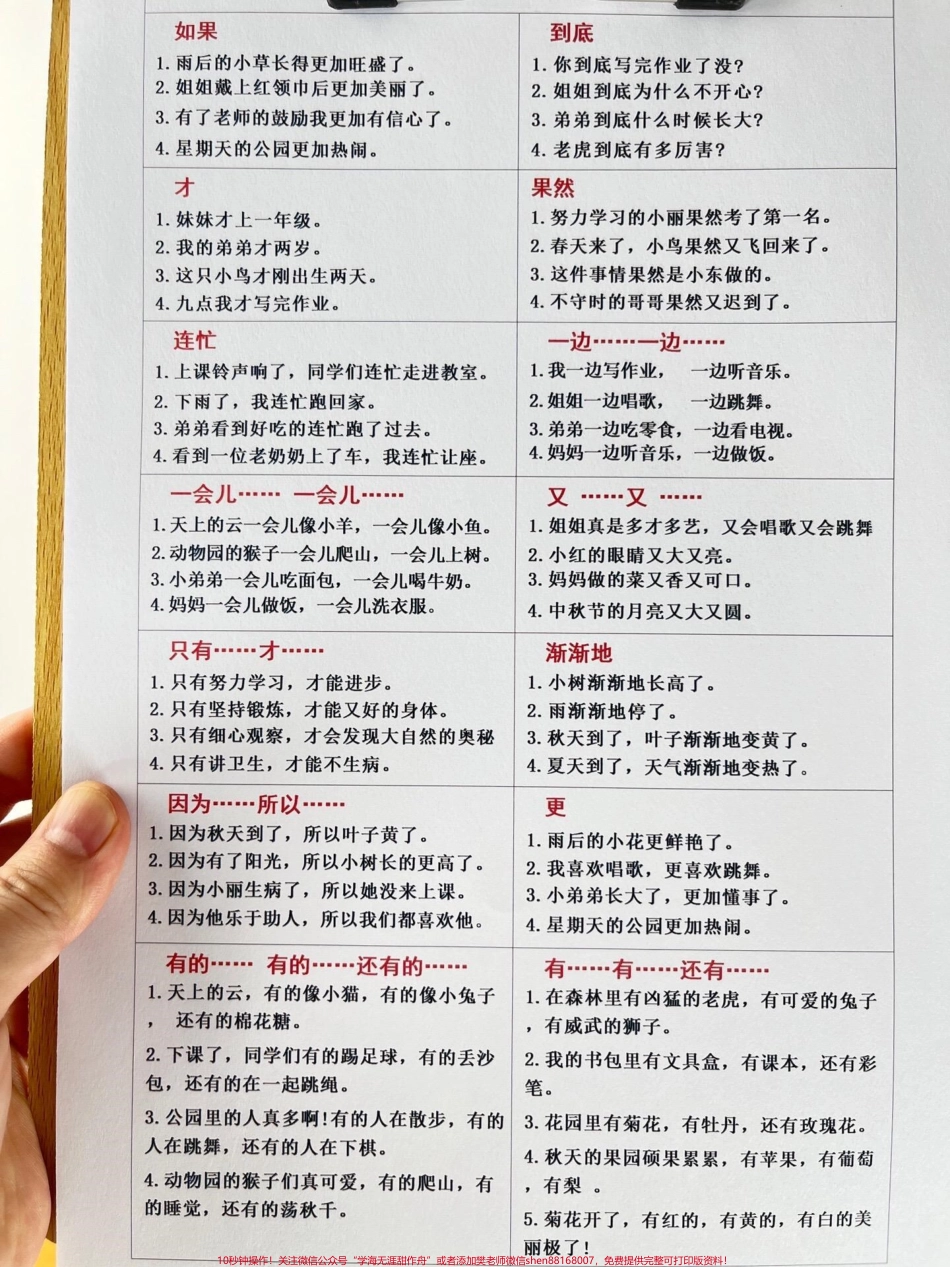 如果
1. 雨后的小草长得更加旺盛了。
2. 姐姐戴上红领巾后更加美丽了。
3. 有了老师的鼓励我更加有信心了。
4. 星期天的公园更加热闹。
到底
1. 你到底写完作业了没?
2. 姐姐到底为什么不开心?
3. 弟弟到底什么时候长大?
4. 老虎到底有多厉害?
才
1. 妹妹才上一年级。
2. 我的弟弟才两岁。
3. 这只小鸟才刚出生两天。
4. 九点我才写完作业。
果然
1. 努力学习的小丽果然考了第一名。
2. 春天来了，小鸟果然又飞回来了。
3. 这件事情果然是小东做的。
4. 不守时的哥哥果然又迟到了。
连忙
1. 上课铃声响了，同学们连忙走进教室。
2. 下雨了，我连忙跑回家。
3. 弟弟看到好吃的连忙跑了过去。
4. 看到一位老奶奶上了车，我连忙让座。
一边……一边……
1. 我一边写作业， 一边听音乐。
2. 姐姐一边唱歌， 一边跳舞。
3. 弟弟一边吃零食，一边看电视。
4. 妈妈一边听音乐，一边做饭。
一会儿…… 一会儿……
1. 天上的云一会儿像小羊，一会儿像小鱼。
2. 动物园的猴子一会儿爬山，一会儿上树。
3. 小弟弟一会儿吃面包，一会儿喝牛奶。
4. 妈妈一会儿做饭，一会儿洗衣服。
又 ……又 ……
1. 姐姐真是多才多艺，又会唱歌又会跳舞
2. 小红的眼睛又大又亮。
3. 妈妈做的菜又香又可口。
4. 中秋节的月亮又大又圆。
只有……才……
1. 只有努力学习，才能进步。
2. 只有坚持锻炼，才能又好的身体。
3. 只有细心观察，才会发现大自然的奥秘
4. 只有讲卫生，才能不生病。
渐渐地
1. 小树渐渐地长高了。
2. 雨渐渐地停了。
3. 秋天到了，叶子渐渐地变黄了。
4. 夏天到了，天气渐渐地变热了。
因为……所以……
1. 因为秋天到了，所以叶子黄了。
2. 因为有了阳光，所以小树长的更高了。
3. 因为小丽生病了，所以她没来上课。
4. 因为他乐于助人，所以我们都喜欢他。
更
1. 雨后的小花更鲜艳了。
2. 我喜欢唱歌，更喜欢跳舞。
3. 小弟弟长大了，更加懂事了。
4. 星期天的公园更加热闹。
有的…… 有的……还有的……
1. 天上的云，有的像小猫，有的像小兔子
， 还有的棉花糖。
2. 下课了，同学们有的踢足球，有的丢沙
包，还有的在一起跳绳。
3. 公园里的人真多啊!有的人在散步，有的
人在跳舞，还有的人在下棋。
4. 动物园的猴子们真可爱，有的爬山，有
的睡觉，还有的荡秋千。
有……有……还有……
1. 在森林里有凶猛的老虎，有可爱的兔子
，有威武的狮子。
2. 我的书包里有文具盒，有课本，还有彩
笔。
3. 花园里有菊花，有牡丹，还有玫瑰花。
4. 秋天的果园硕果累累，有苹果，有葡萄
，有梨 。
5. 菊花开了，有红的，有黄的，有白的美
丽极了!
10秒钟操作！关注微信公众号“学海无涯甜作舟”或者添加樊老师微信shen88168007，免费提供完整可打印版资料！